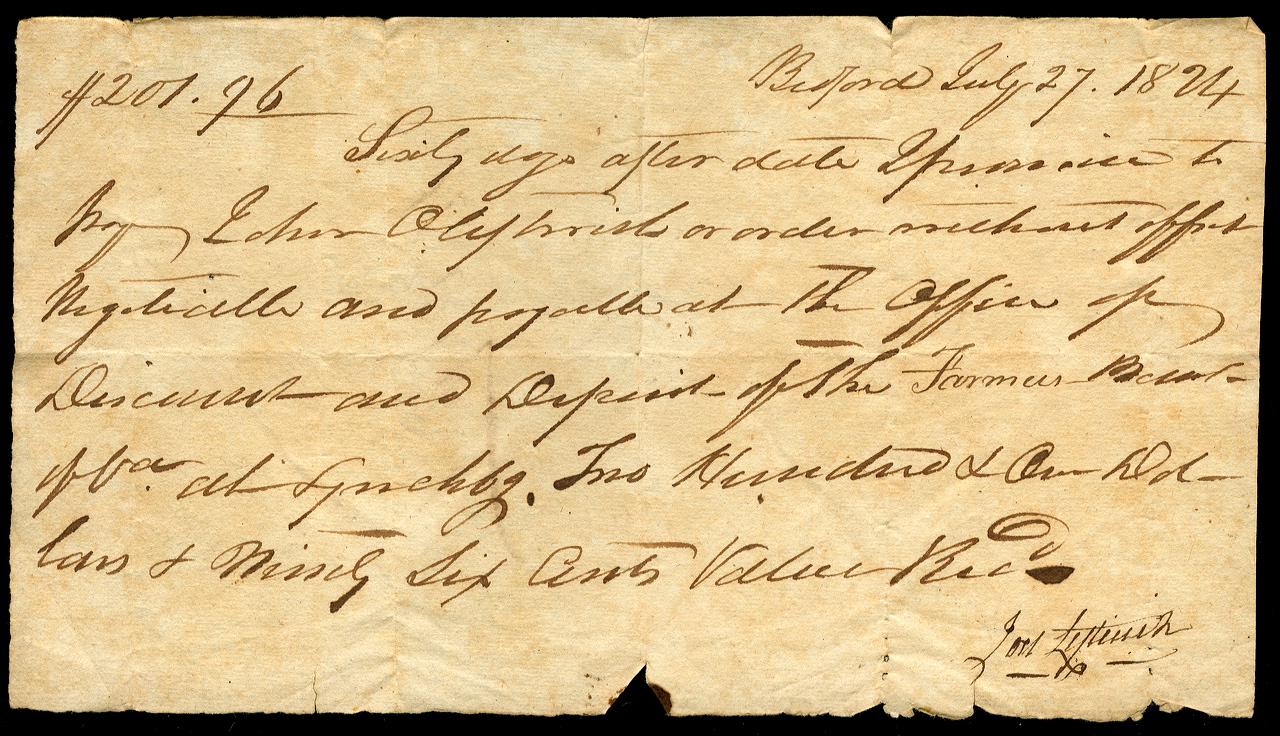 $201.96
Bedford July 27. 1824
Sixty days after date I promise to
pay John Otey or order without offset
Negotiable and payable at the Office of
Discount and Deposit of the Farmers Bank
of Va. at Lynchbg. Two Hundred & One Dol-
lars & Ninety Six Cents Value Recd
Joel Leftwich